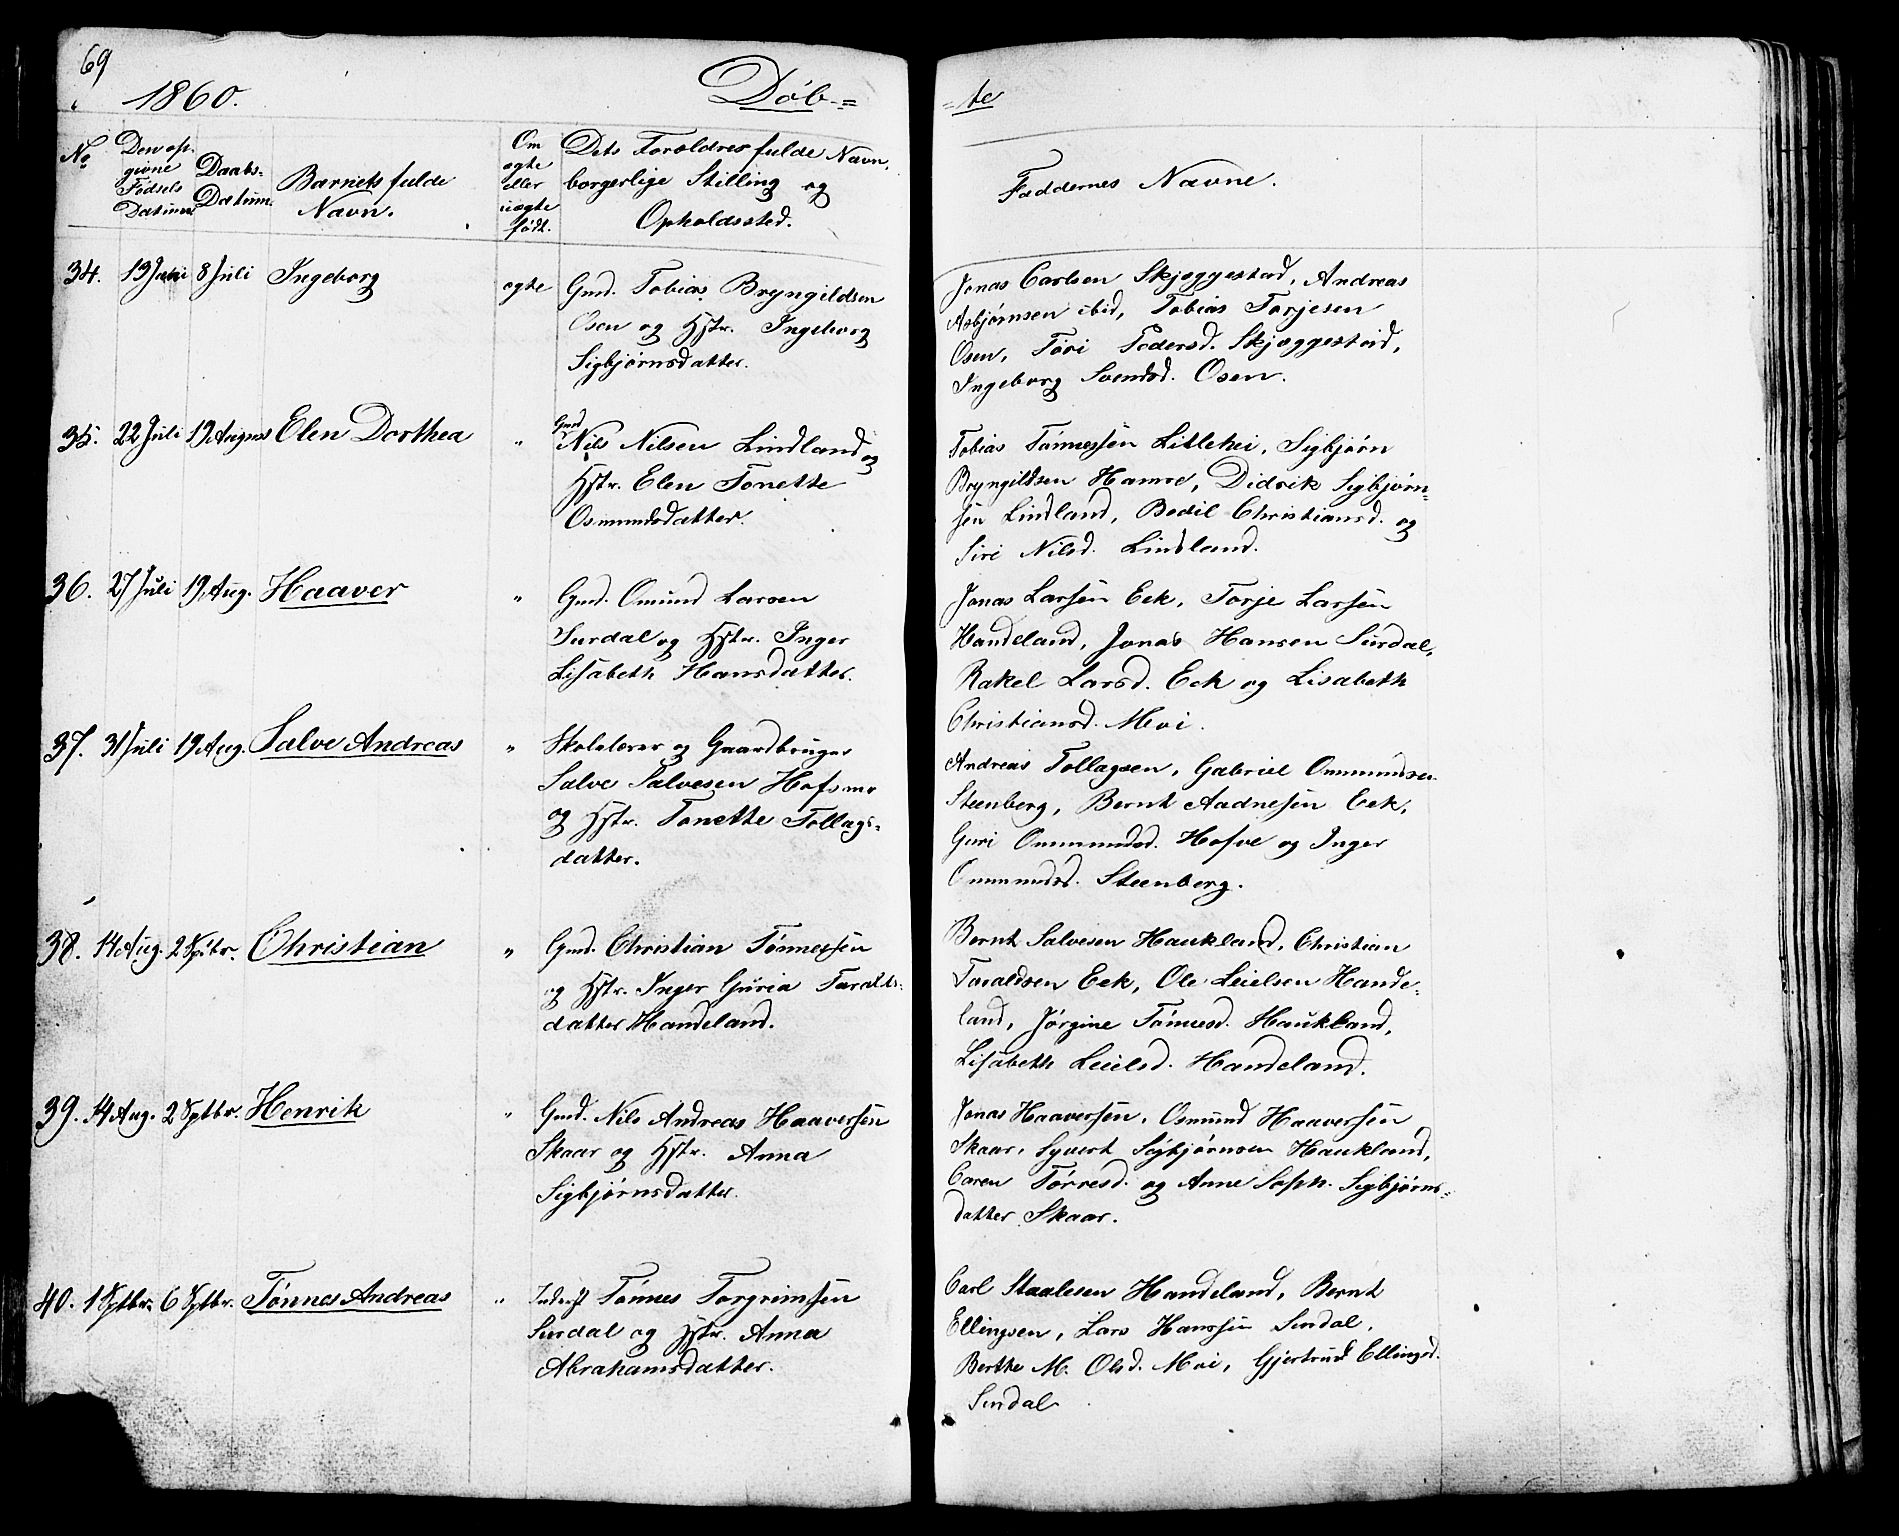 69
1860. Döb-=
=te
No
Den op-
givne
Fødsels
Datum
Daabs-
Datum.
Barnets fulde
Navn.
Om
ægte
eller
uægte
født.
Dets Forældres fulde Navn,
borgerlige Stilling og
Opholdssted.
Faddernes Navne.
34. 13 Juni 8 Juli Ingeborg ægte Gmd. Tobias Bryngildsen
Osen og Hstr. Ingeborg
Sigbjørnsdatter.
Jonas Carlsen Skjeggestad, Andreas
Asbjørnsen ibid, Tobias Torjesen
Osen, Tori Pedersd. Skjæggestad,
Ingeborg Svendsd. Osen.
35. 22 Juli 19 August Elen Dorthea " Gmd
Nils Nilsen Lindland og
Hstr. Elen Tonette
Osmundsdatter.
Tobias Tønnessen Litlehei, Sigbjørn
Bryngildsen Hamre, Didrik Sigbjørn=
sen Lindland, Bodil Christiansd. og
Siri Nilsd. Lindland.
36. 27 Juli 19 Aug. Haaver " Gmd. Omund Larsen
Surdal og Hstr. Inger
Lisabeth Hansdatter.
Jonas Larsen Eek, Torje Larsen
Handeland, Jonas Hansen Surdal,
Rakel Larsd. Eek og Lisabeth
Christiansd. Moi.
37. 31 Juli 19 Aug. Salve Andreas " Skolelærer og Gaardbruger
Salve Salvesen Hofsmo
og Hstr. Tonette Tollags-
datter.
Andreas Tollagsen, Gabriel Ommundsen
Steenberg, Bernt Aadnesen Eek,
Guri Ommundsd. Hofve og Inger
Ommundsd. Steenberg.
38. 14 Aug. 2 Sptbr. Christian " Gmd. Christian Tønnessen
og Hstr. Inger Guria Taralds-
datter Handeland.
Bernt Salvesen Haukland, Christian
Taraldsen Eek, Ole Leielsen Hande-
land, Jörgine Tönnesd. Haukland,
Lisabeth Leielsd. Handeland.
39. 14 Aug. 2 Sptbr. Henrik " Gmd. Nils Andreas Haaversen
Skaar og Hstr. Anna
Sigbjørnsdatter.
Jonas Haaversen, Osmund Haaversen
Skaar, Syvert Sigbjørnsen Haukland,
Caren Tørresd. og Anne Soph. Sigbjørns=
datter Skaar.
40. 1 Sptbr. 6 Sptbr. Tønnes Andreas " Inderst Tønnes Torgrimsen
Surdal og Hstr. Anna
Abrahamsdatter.
Carl Staalesen Handeland, Bernt
Ellingsen, Lars Hanssen Surdal,
Berthe M. Olsd. Moi, Gjertrud Ellingsd.
Surdal